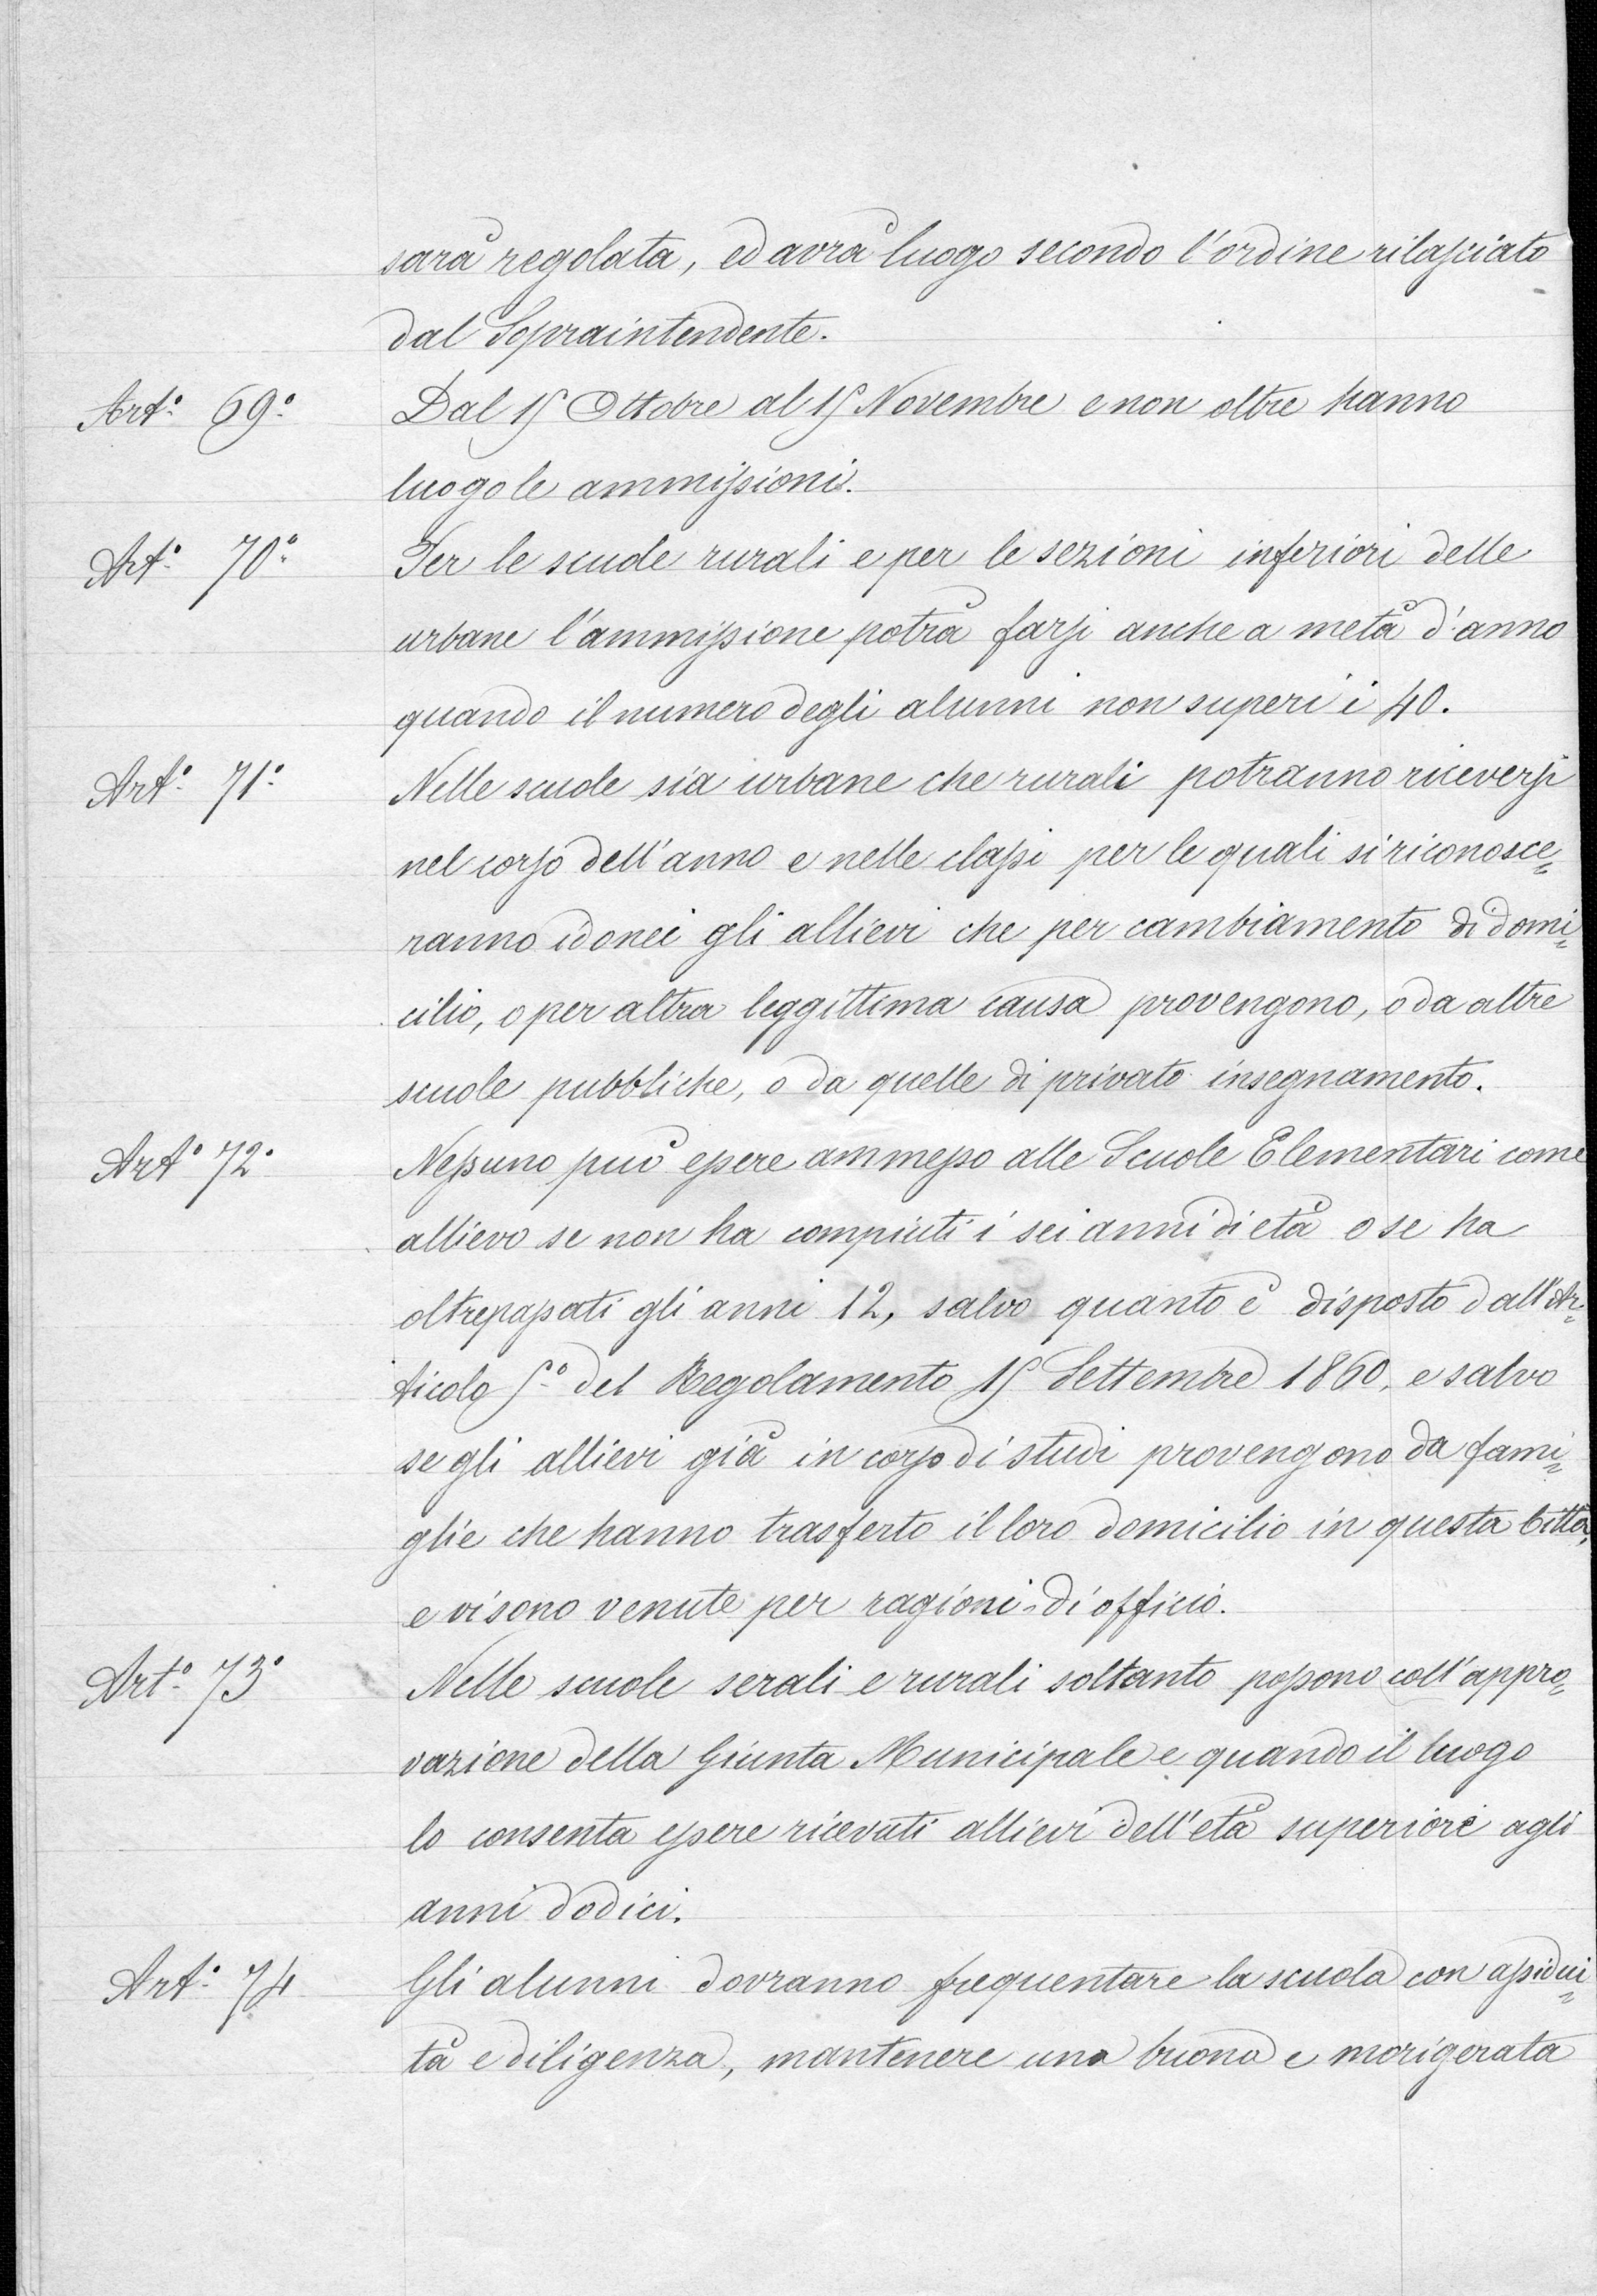 sarà regolata, ed avrà luogo secondo l'ordine rilasciato
dal Sopraintendente.
Art.º 69.º Dal 15 Ottobre al 15 Novembre e non oltre hanno
luogo le ammissioni.
Art.º 70.º Per le scuole rurali e per le sezioni inferiori delle
urbane l'ammissione potrà farsi anche a metà d'anno
quando il numero degli alunni non superi i 40.
Art.º 71.º Nelle scuole sia urbane che rurali potranno riceversi
nel corso dell'anno e nelle classi per le quali si riconosce=
ranno idonei gli allievi che per cambiamento di domi=
cilio, o per altra leggittima causa provengono, o da altre
scuole pubbliche, o da quelle di privato insegnamento.
Art.º 72.º Nessuno può essere ammesso alle Scuole Elementari come
allievo se non ha compiuti i sei anni di età o se ha
oltrepassati gli anni 12, salvo quanto è disposto dall'Ar=
ticolo 5.º del Regolamento 15 Settembre 1860, e salvo
se gli allievi già in corso di studi provengono da fami=
glie che hanno trasferto il loro domicilio in questa Città,
e vi sono venute per ragioni di officio.
Art.º 73.º Nelle scuole serali e rurali soltanto possono coll'appro=
vazione della Giunta Municipale e quando il luogo
lo consenta essere ricevuti allievi dell'età superiore agli
anni dodici.
Art.º 74 Gli alunni dovranno frequentare la scuola con assidui=
tà e diligenza, mantenere una buona e morigerata